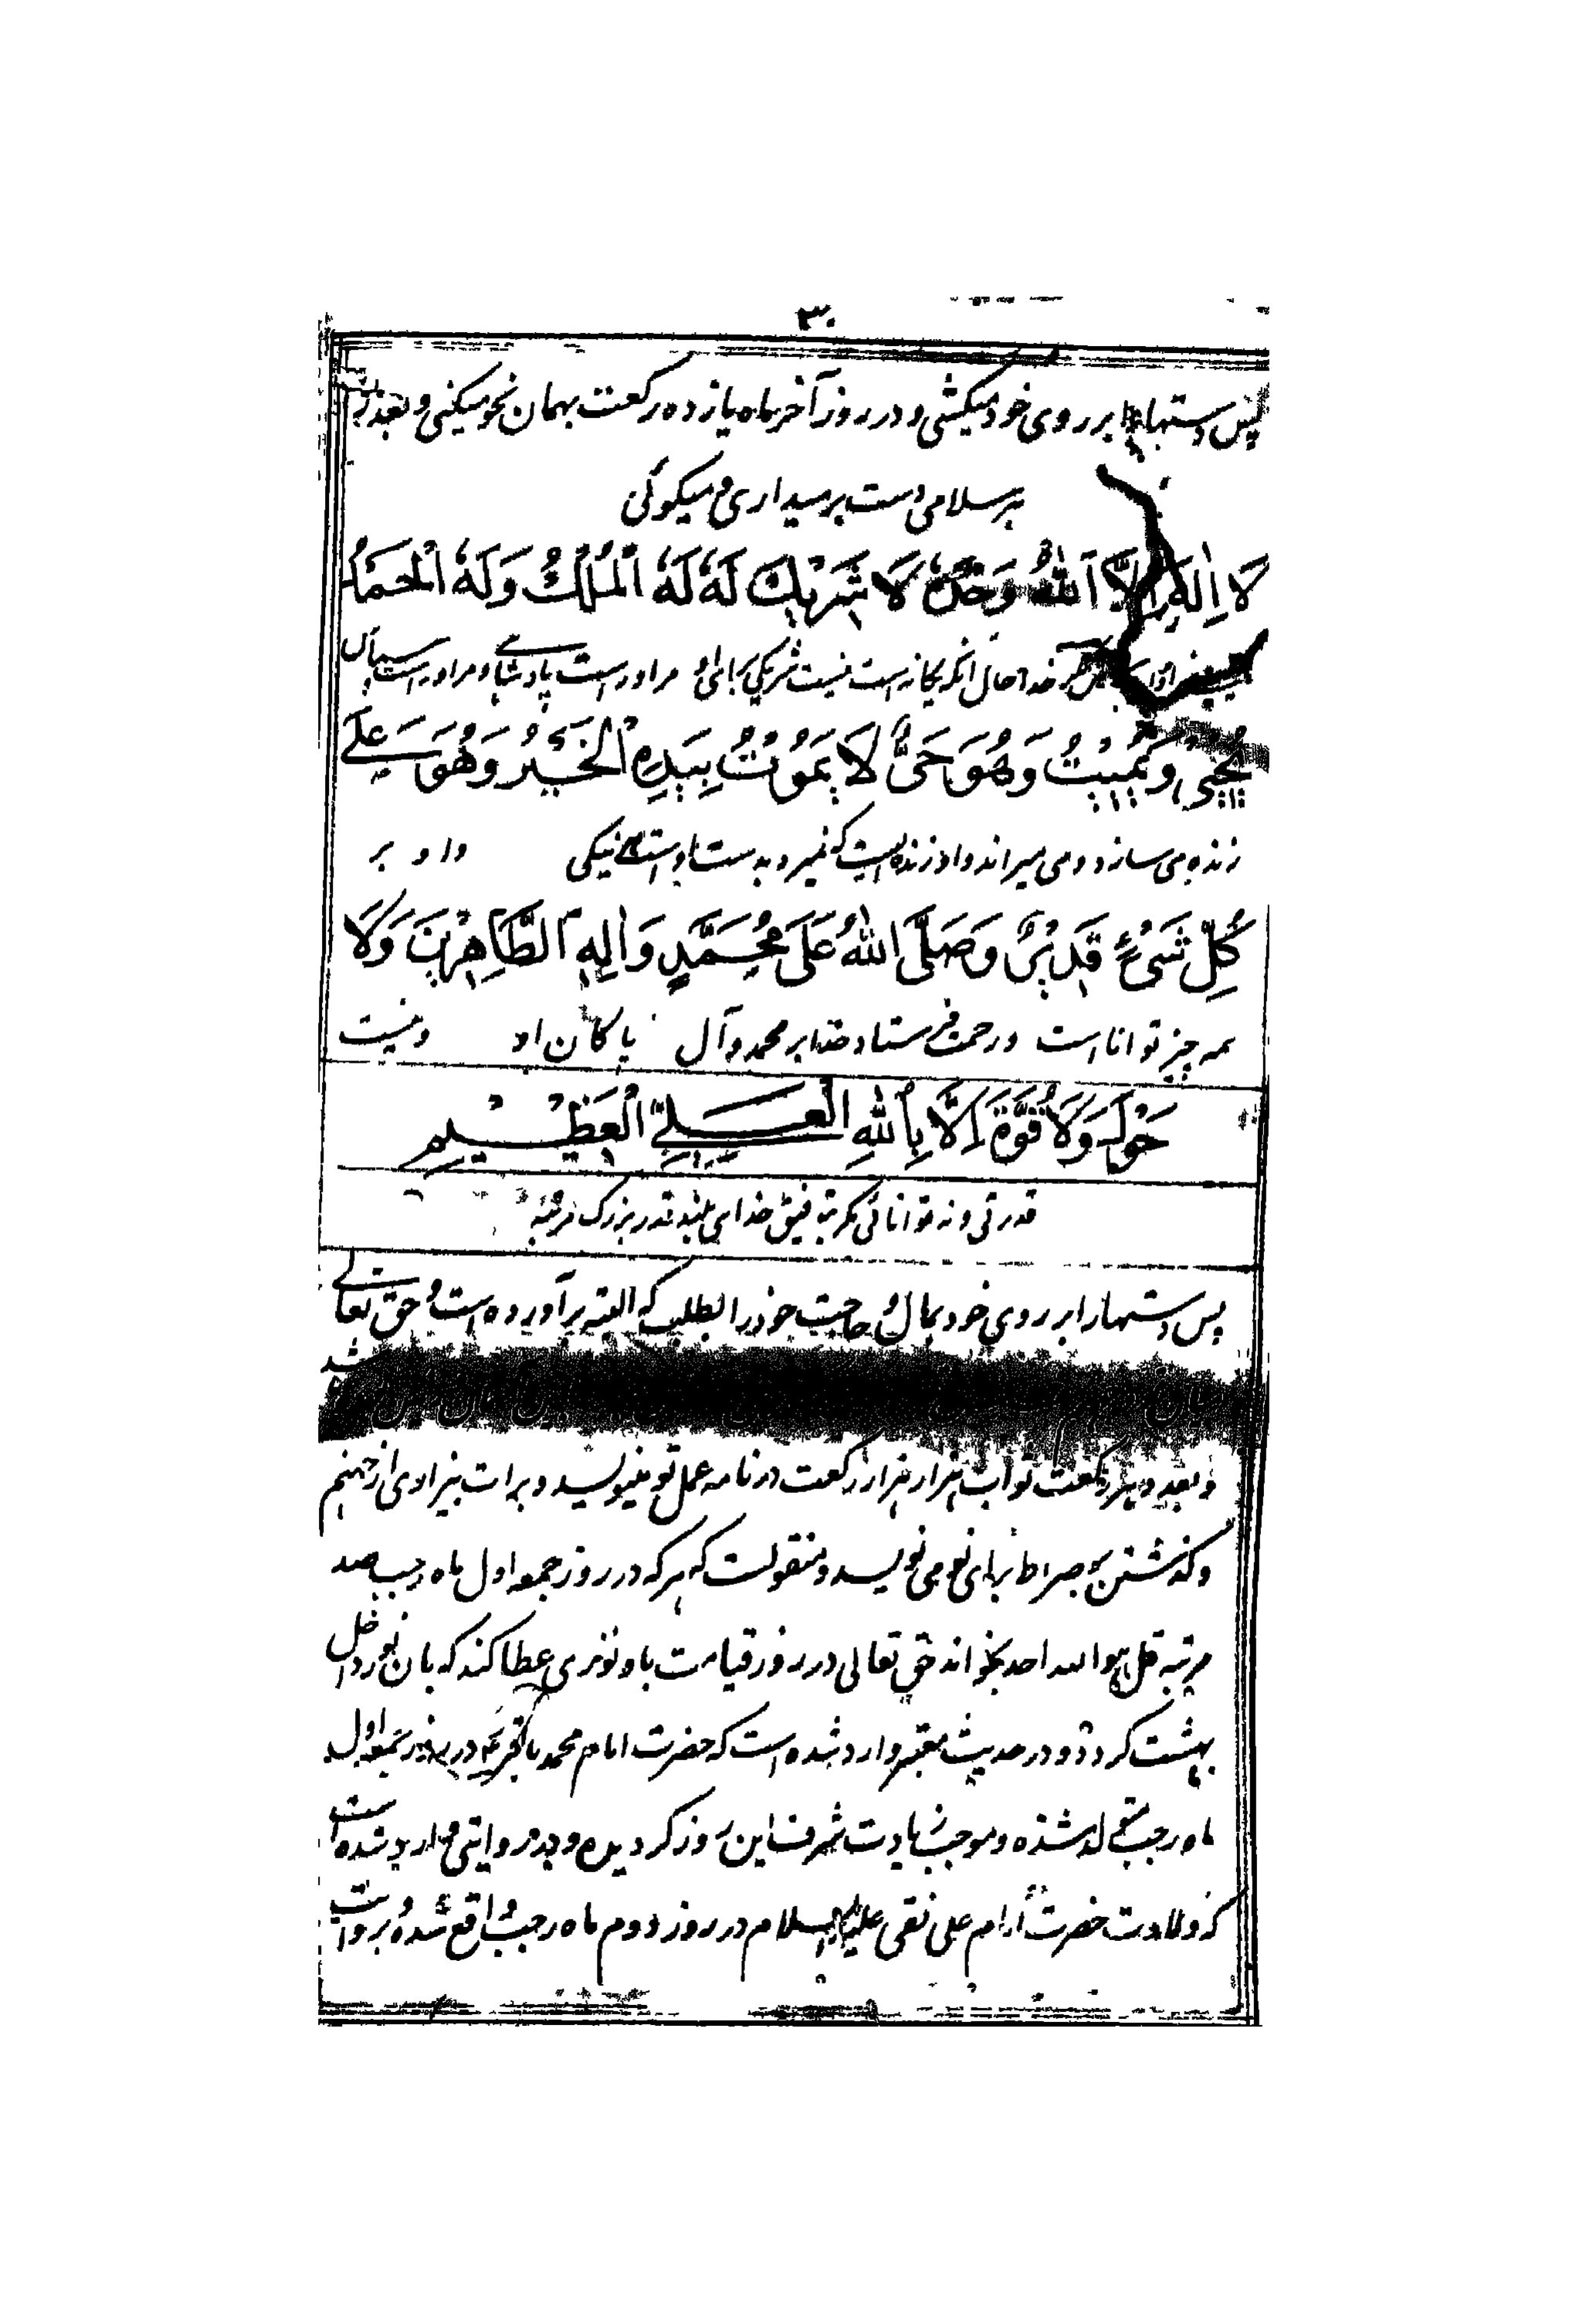 ۳۰
پس دستها را بر روی خود میکشی و در روز آخر ماه یازده رکعت بهمان نحو میکنی و بعد از
هر سلامی دست برمیداری و میگوئی
لَا اِلٰهَ اِلَّا اللهُ وَحْدَهٗ لَا شَرِيْكَ لَهٗ لَهُ الْمُلْكُ وَلَهُ الْحَمْدُ
خدا حال آنکه یگانه است نیست شریکی برای او مر او راست پادشاهی و مر او راست سپاس
يُحْيِيْ وَيُمِيْتُ وَهُوَ حَيٌّ لَا يَمُوْتُ بِيَدِهِ الْخَيْرُ وَهُوَ عَلٰے
زنده می سازد و می میراند و او زنده ایست که نمیرد بدست او است نیکی و او بر
كُلِّ شَيْءٍ قَدِيْرٌ وَصَلَّى اللهُ عَلٰى مُحَمَّدٍ وَاٰلِهِ الطَّاهِرِيْنَ وَلَا
همه چیز توانا است و رحمت فرستاد خدا بر محمد و آل پاکان او و نیست
حَوْلَ وَلَا قُوَّةَ اِلَّا بِاللهِ الْعَلِيِّ الْعَظِيْمِ
قدرتی و نه توانائی مگر بتوفیق خدای بلند قدر بزرگ مرتبه
پس دستها را بر روی خود بمال و حاجت خود را بطلب که البته برآورده است و حق تعالے
و بعدد هر رکعت ثواب هزار هزار رکعت در نامه عمل تو مینویسد و برات بیزاری از جهنم
و گذشتن بر صراط برای تو می نویسد و منقولست که هر که در روز جمعه اول ماه رجب صد
مرتبه قل هو الله احد بخواند حق تعالی در روز قیامت باو نوری عطا کند که بان نور داخل
بهشت گردد و در حدیث معتبر وارد شده است که حضرت امام محمد باقر ع در روز جمعه اول
ماه رجب متولد شده و موجب زیادت شرف این روز گردیده و در روایتی وارد شده است
که ولادت حضرت امام علی نقی علیه السلام در روز دوم ماه رجب واقع شده و بروایت